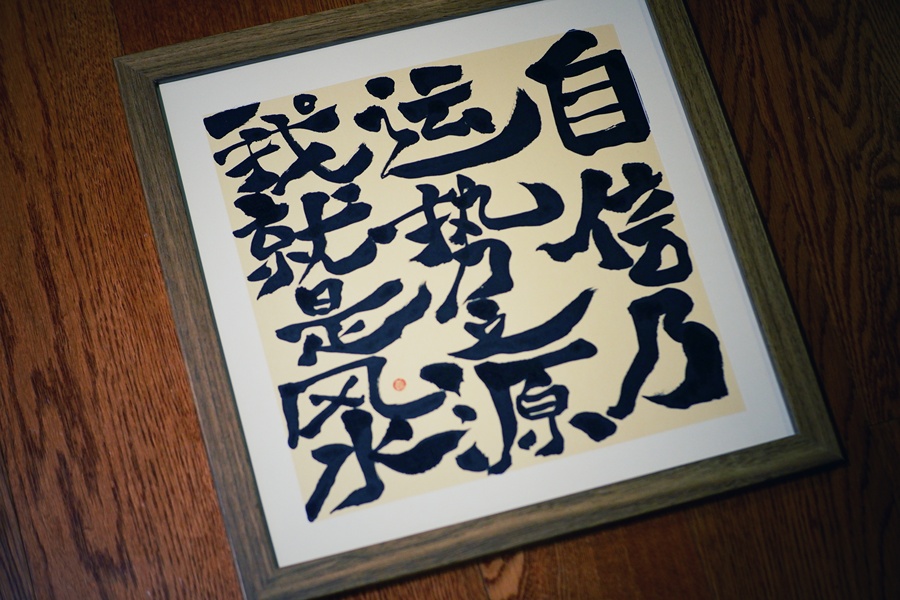 自信乃
运势之源
我就是风水